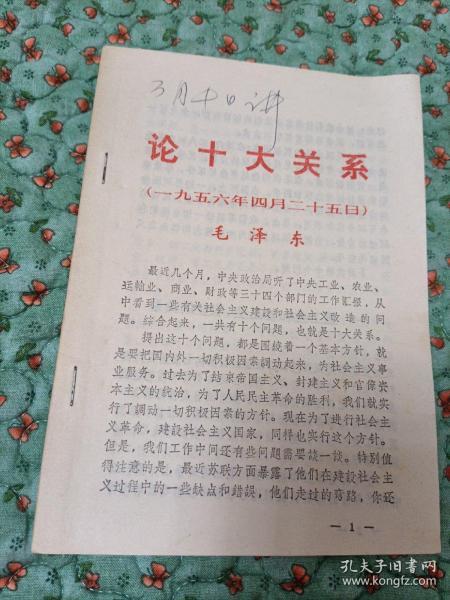 3月十日讲
论十大关系
(一九五六年四月二十五日)
毛泽东
最近几个月，中央政治局听了中央工业、农业、
运输业、商业、财政等三十四个部门的工作汇报，从
中看到一些有关社会主义建设和社会主义改造的问
题。综合起来，一共有十个问题，也就是十大关系。
提出这十个问题，都是围绕着一个基本方针，就
是要把国内外一切积极因素调动起来，为社会主义事
业服务。过去为了结束帝国主义、封建主义和官僚资
本主义的统治，为了人民民主革命的胜利，我们就实
行了调动一切积极因素的方针。现在为了进行社会主
义革命，建设社会主义国家，同样也实行这个方针。
但是，我们工作中间还有些问题需要谈一谈。特别值
得注意的是，最近苏联方面暴露了他们在建设社会主
义过程中的一些缺点和错误，他们走过的弯路，你还
— 1 —
孔夫子旧书网
www.kongfz.com